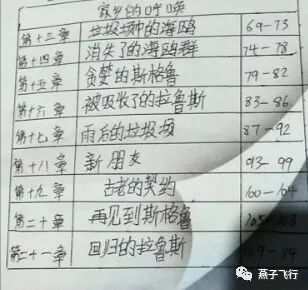 家乡的呼唤
第十三章 垃圾场中的海鸥 69-73
第十四章 消失了的海鸥群 74-78
第十五章 贪婪的斯格鲁 79-82
第十六章 被吸收了的拉鲁斯 83-86
第十七章 雨后的垃圾场 87-92
第十八章 新朋友 93-99
第十九章 古老的契约 100-104
第二十章 再见到斯格鲁 105-108
第二十一章 回归的拉鲁斯 109-114
燕子飞行